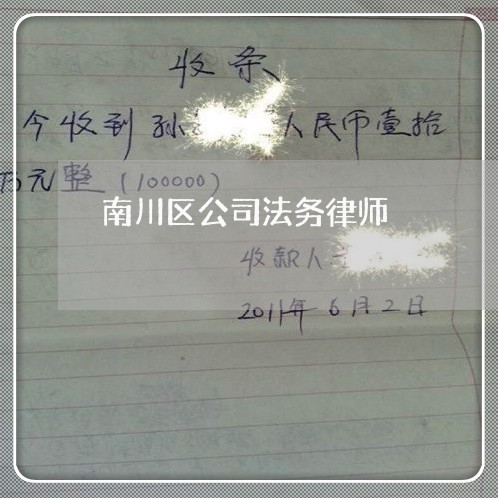 收条
今收到孙 人民币壹拾
万元整（100000）
南川区公司法务律师
收款人
2011年6月2日